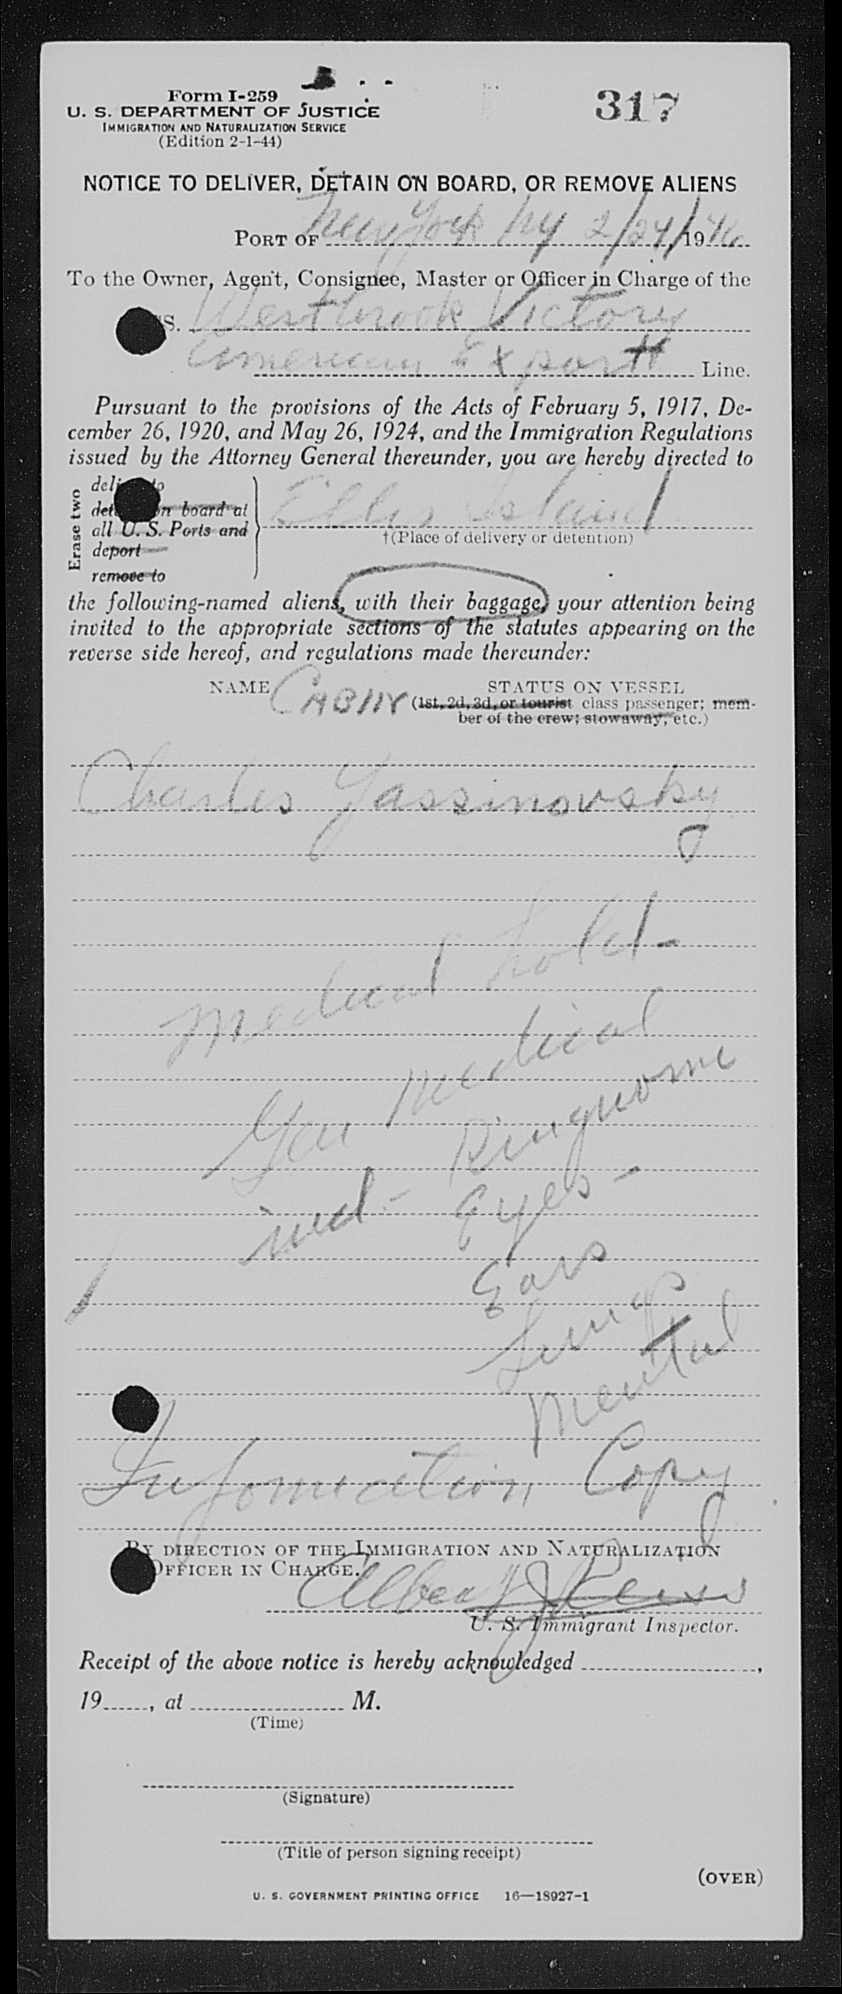 Form I-259
U. S. DEPARTMENT OF JUSTICE
IMMIGRATION AND NATURALIZATION SERVICE
(Edition 2-1-44)
317
NOTICE TO DELIVER, DETAIN ON BOARD, OR REMOVE ALIENS
PORT OF New York Ny 2/24/1946
To the Owner, Agent, Consignee, Master or Officer in Charge of the
SS. Westbrook Victory
American Export Line.
Pursuant to the provisions of the Acts of February 5, 1917, De-
cember 26, 1920, and May 26, 1924, and the Immigration Regulations
issued by the Attorney General thereunder, you are hereby directed to
Erase two
deliver to
detain on board at
all U. S. Ports and
deport
remove to
Ellis Island
†(Place of delivery or detention)
the following-named aliens, with their baggage, your attention being
invited to the appropriate sections of the statutes appearing on the
reverse side hereof, and regulations made thereunder:
NAME CABIN STATUS ON VESSEL
(1st, 2d, 3d, or tourist class passenger; mem-
ber of the crew; stowaway, etc.)
Charles Yassinovsky
Medical hold-
Gen Medical
incl- Ringworm
Eyes-
Ears
Lungs
Mental
Infomation Copy
BY DIRECTION OF THE IMMIGRATION AND NATURALIZATION
OFFICER IN CHARGE.
Albert J Reiss
U. S. Immigrant Inspector.
Receipt of the above notice is hereby acknowledged ,
19 , at M.
(Time)
(Signature)
(Title of person signing receipt)
(OVER)
U. S. GOVERNMENT PRINTING OFFICE 16—18927-1